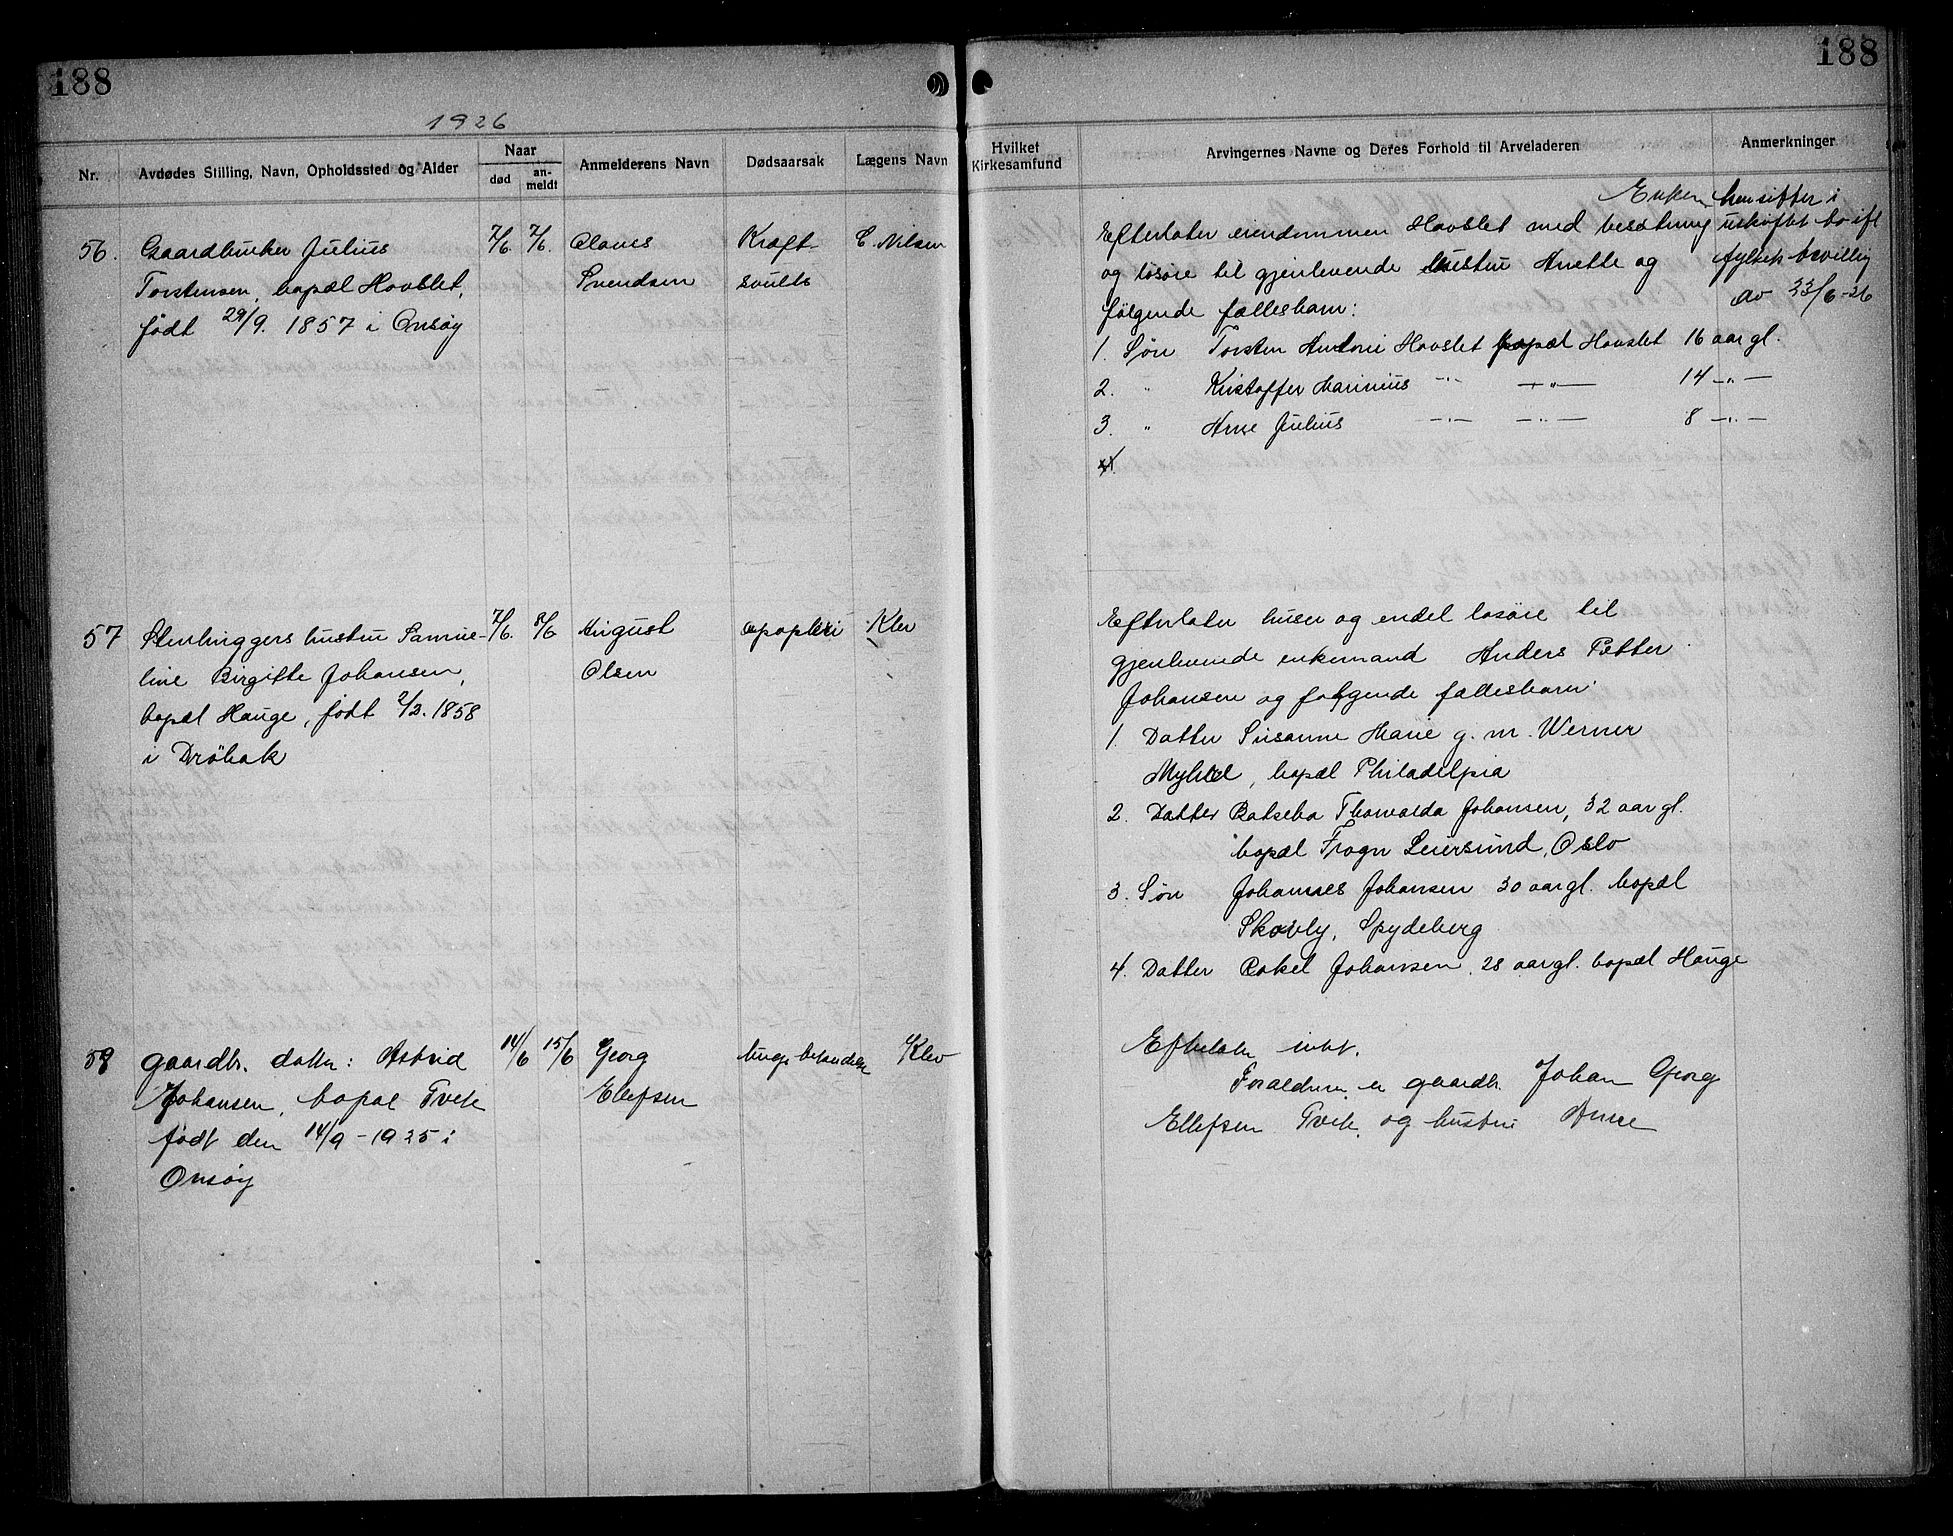 188
188
1926
Nr.
Avdødes Stilling, Navn, Opholdssted og Alder
Naar
død
an-
meldt
Anmelderens Navn
Dødsaarsak
Lægens Navn
Hvilket
Kirkesamfund
Arvingernes Navne og Deres Forhold til Arveladeren
Anmerkninger
56.
Gaardbruker Julius
Torstensen, bopæl Hovslet,
født 29/9. 1857 i Onsøy
7/6
7/6.
Olaves
Svendsen
Kræft-
svulst
C. Nilsen
Efterlater eiendommen Hovslet med besætning
og løsøre til gjenlevende hustru Anette og
følgende fællesbarn:
1. Søn Torsten Antoni Hovslet bopæl Hovslet 16 aar gl.
2. " Kristoffer Marinius -"- -"- 14 -"-
3. " Arne Julius -"- -"- 8 -"-
Enken hensitter i
uskiftet bo ifl
fylkets bevillig
av 23/6-26
57
Stenhuggers hustru Samue-
line Birgitte Johansen,
bopæl Hauge, født 2/2. 1858
i Drøbak
7/6.
8/6
August
Olsen
apoplexi
Klev
Efterlater huser og endel løsøre til
gjenlevende enkemand Anders Petter
Johansen og følgende fællesbarn:
1. Datter Susanne Marie g. m. Werner
bopæl Philadelpia
2. Datter Batseba Thorvalda Johansen, 32 aar gl.
bopæl Frogn Leiersund, Oslo
3. Søn Johannes Johansen 30 aar gl. bopæl
Skovly, Spydeberg
4. Datter Rakel Johansen, 28 aar gl. bopæl Hauge
58
gaardbr. datter: Astrid
Johansen, bopæl Tvete
født den 14/9-1925 i
Onsøy
14/6
15/6
Georg
Ellefsen
Klev
Efterlater intet.
Forældrene er gaardb. Johan Georg
Ellefsen Tvete, og hustru Anne